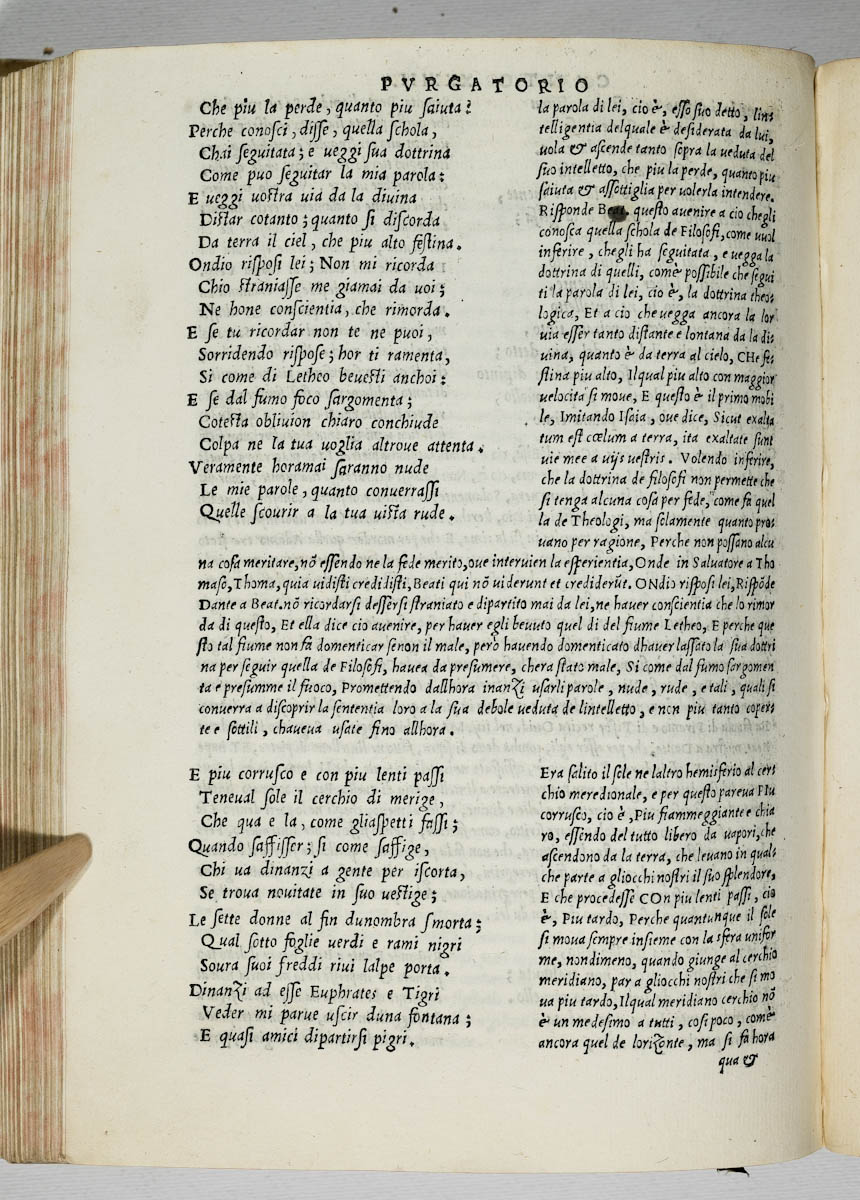 PVRGATORIO
Che piu la perde, quanto piu saiuta?
Perche conosci, disse, quella schola,
Chai seguitata; e ueggi sua dottrina
Come puo seguitar la mia parola:
E ueggi uostra uia da la diuina
Distar cotanto; quanto si discorda
Da terra il ciel, che piu alto festina.
Ondio risposi lei; Non mi ricorda
Chio straniasse me giamai da uoi;
Ne hone conscientia, che rimorda.
E se tu ricordar non te ne puoi,
Sorridendo rispose; hor ti ramenta,
Si come di Letheo beuesti anchoi:
E se dal fumo foco sargomenta;
Cotesta obliuion chiaro conchiude
Colpa ne la tua uoglia altroue attenta.
Veramente horamai saranno nude
Le mie parole, quanto conuerrassi
Quelle scourir a la tua uista rude.
la parola di lei, cio è, esso suo detto, lin
telligentia delquale è desiderata da lui,
uola & ascende tanto sopra la ueduta del
suo intelletto, che piu la perde, quanto piu
saiuta & assottiglia per uolerla intendere.
Risponde Beat. questo auenire a cio chegli
conosca quella schola de Filosofi, come uuol
inferire, chegli ha seguitata, e uegga la
dottrina di quelli, comè possibile che segui
ti la parola di lei, cio è, la dottrina theo
logica, Et a cio che uegga ancora la lor
uia esser tanto distante e lontana da la di
uina, quanto è da terra al cielo, CHe fe
stina piu alto, Ilqual piu alto con maggior
uelocita si moue, E questo è il primo mobi
le, Imitando Isaia, oue dice, Sicut exalta
tum est cœlum a terra, ita exaltate sunt
uie mee a uijs uestris. Volendo inferire,
che la dottrina de filosofi non permette che
si tenga alcuna cosa per fede, come fa quel
la de Theologi, ma solamente quanto pro
uano per ragione, Perche non possano alcu
na cosa meritare, nõ essendo ne la fede merito, oue interuien la esperientia, Onde in Saluatore a Tho
maso, Thoma, quia uidisti credidisti, Beati qui nõ uiderunt et crediderũt. ONdio risposi lei, Rispõde
Dante a Beat. nõ ricordarsi dessersi straniato e dipartito mai da lei, ne hauer conscientia che lo rimor
da di questo, Et ella dice cio auenire, per hauer egli beuuto quel di del fiume Letheo, E perche que
sto tal fiume non fa domenticar senon il male, però hauendo domenticato dhauer lassato la sua dottri
na per seguir quella de Filosofi, hauea da presumere, chera stato male, Si come dal fumo sargomen
ta e presumme il fuoco, Promettendo dallhora inanzi usarli parole, nude, rude, e tali, quali si
conuerra a discoprir la sententia loro a la sua debole ueduta de lintelletto, e non piu tanto coper
te e sottili, chaueua usate fino allhora.
E piu corrusco e con piu lenti passi
Teneual sole il cerchio di merige,
Che qua e la, come gliaspetti fassi;
Quando saffisser; si come saffige,
Chi ua dinanzi a gente per iscorta,
Se troua nouitate in suo uestige;
Le sette donne al fin dunombra smorta;
Qual sotto foglie uerdi e rami nigri
Soura suoi freddi riui lalpe porta.
Dinanzi ad esse Euphrates e Tigri
Veder mi parue uscir duna fontana;
E quasi amici dipartirsi pigri.
Era salito il sole ne laltro hemisferio al cer
chio meredionale, e per questo pareua PIu
corrusco, cio è, Piu fiammeggiante e chia
ro, essendo del tutto libero da uapori, che
ascendono da la terra, che leuano in qual
che parte a gliocchi nostri il suo splendore,
E che procedesse COn piu lenti passi, cio
è, Piu tardo, Perche quantunque il sole
si moua sempre insieme con la sfera unifor
me, nondimeno, quando giunge al cerchio
meridiano, par a gliocchi nostri che si mo
ua piu tardo, Ilqual meridiano cerchio nõ
è un medesimo a tutti, cosi poco, comè
ancora quel de lorizonte, ma si fa hora
qua &